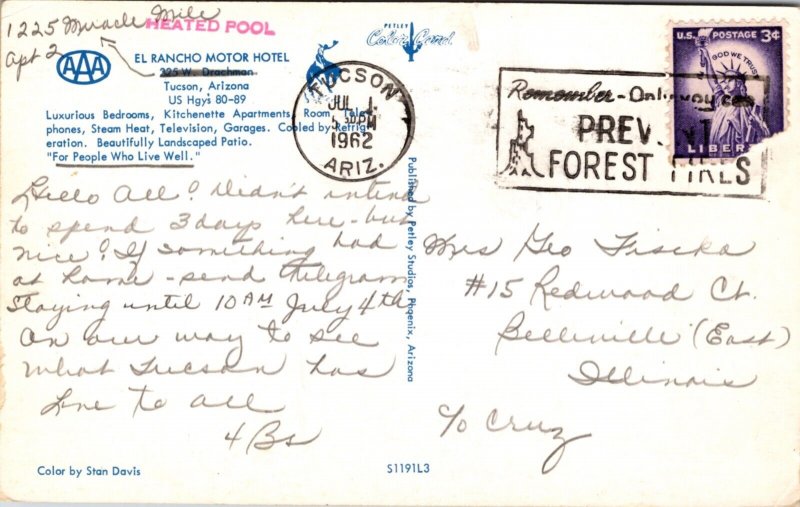 1225 Miracle Mile
Apt 2
HEATED POOL
AAA
EL RANCHO MOTOR HOTEL
325 W. Drachman
Tucson, Arizona
US Hgys 80-89
Luxurious Bedrooms, Kitchenette Apartments, Room Tele-
phones, Steam Heat, Television, Garages. Cooled by Refrig-
eration. Beautifully Landscaped Patio.
"For People Who Live Well."
Hello All! Didn't intend
to spend 3 days here - but
nice! If something bad
at home - send telegram
Staying until 10 AM July 4th
On our way to see
what Tucson has
Love to all
4 Bs
Color by Stan Davis
PETLEY
Color Card
TUCSON
JUL 1
5 30 PM
1962
ARIZ.
Published by Petley Studios, Phoenix, Arizona
S1191L3
Remember - Only you can
PREVENT
FOREST FIRES
U.S. POSTAGE 3¢
IN GOD WE TRUST
LIBER
Mrs Geo Fiscka
#15 Redwood Ct.
Belleville (East)
Illinois
c/o Cruz